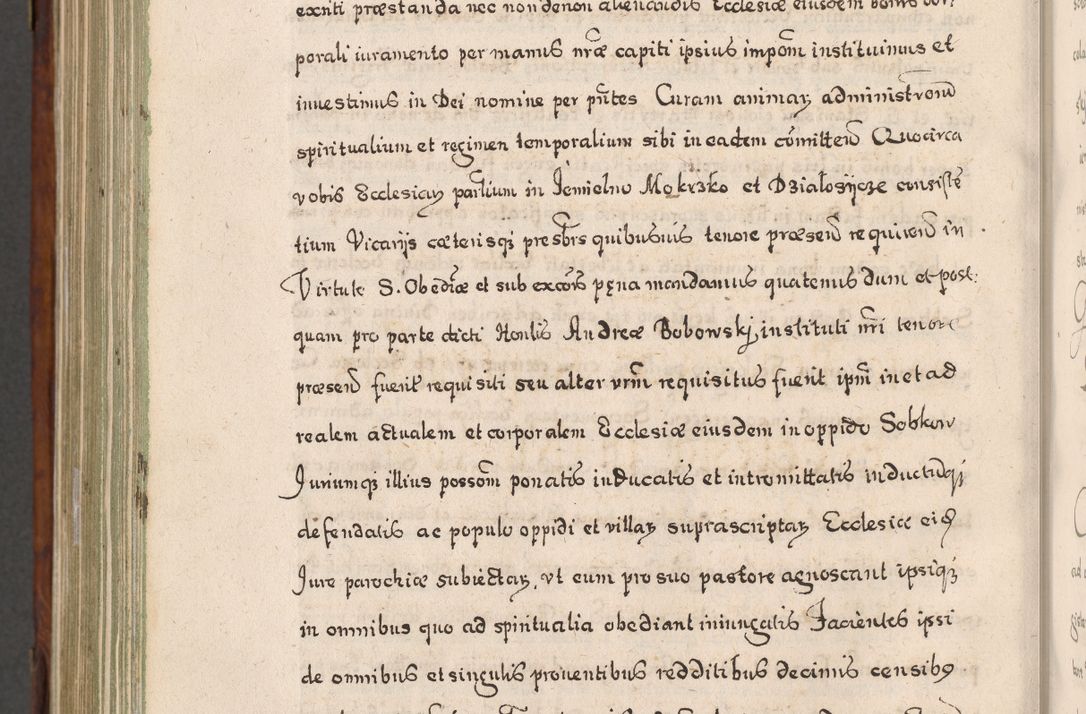 exnti præstanda nec non denon alienandis Ecclesiæ eiusdem bonis cor:
porali iuramento per manus nræ capiti ipsius impom instituimus et
inuestimus in Dei nomine per pntes Curam animaꝝ administrond
spiritualium et regimen temporalium sibi in eadem comitten Quocirca
vobis Ecclesiaꝝ partium in Jemielno Mokrzko et Działosijcze consiste
tium Vicarijs cæterisqꝫ presbrs quibusuis tenore præsen requiren in
Virtute S. Obediæ et sub excois pęna mandamus quatenus dum et post:
quam pro parte dicti Honlis Andreæ Bobowskj instituti nri tenore
præsen fuerit requisiti seu alter vrm requisitus fuerit ipm in et ad
realem actualem et corporalem Ecclesiæ eiusdem in oppido Sobkow
Juriumqꝫ illius possom ponatis inducatis et intromittatis inductumqꝫ
defendatis ac populo oppidi et villaꝝ suprascriptaꝝ Ecclesiæ eiꝰ
Jure parochiæ subiectaꝝ, vt eum pro suo pastore agnoscant ipsiqꝫ
in omnibus quo ad spiritualia obediant iniungatis Facientes ipsi
de omnibus et singulis prouentibus redditibus decimis censibꝰ